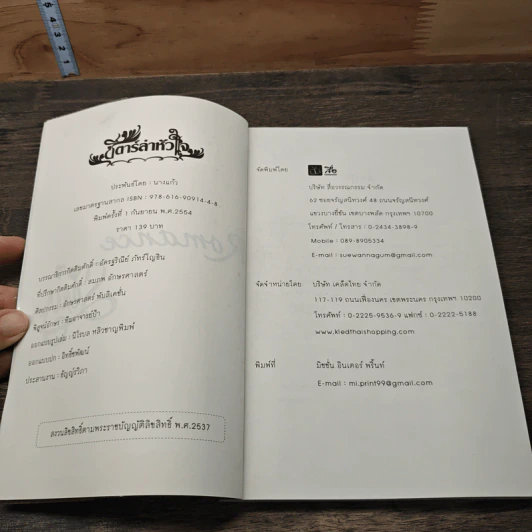 ซีดาร์ลำหัวใจ
ประพันธ์โดย : นางแก้ว
เลขมาตรฐานสากล ISBN : 978-616-90914-4-8
พิมพ์ครั้งที่ 1 กันยายน พ.ศ.2554
ราคา 139 บาท
บรรณาธิการกิตติมศักดิ์ :
ที่ปรึกษากิตติมศักดิ์ : อักษรศาสตร์
ศิลปกรรม : อักษรศาสตร์ พับลิเคชั่น
พิสูจน์อักษร : ทีมอาจารย์ป้า
ออกแบบรูปเล่ม : นิโรบล หลิวชาญพิมพ์
ออกแบบปก : อิทธิ์ชพัฒน์
ประสานงาน : ธัญญ์รวิภา
สงวนลิขสิทธิ์ตามพระราชบัญญัติลิขสิทธิ์ พ.ศ.2537
จัดพิมพ์โดย
บริษัท สื่อวรรณกรรม จำกัด
63 ซอยจรัญสนิทวงศ์ 48 ถนนจรัญสนิทวงศ์
แขวงบางยี่ขัน เขตบางพลัด กรุงเทพฯ 10700
โทรศัพท์ / โทรสาร : 0-2434-3898-9
Mobile : 089-8905334
E-mail : suewannagum@gmail.com
จัดจำหน่ายโดย บริษัท เคล็ดไทย จำกัด
117-119 ถนนเฟื่องนคร เขตพระนคร กรุงเทพฯ 10200
โทรศัพท์ : 0-2225-9536-9 แฟกซ์ : 0-2222-5188
www.kledthaishopping.com
พิมพ์ที่ มิชชั่น อินเตอร์ พริ้นท์
E-mail : mi.print99@gmail.com
Romance
5 4 3 2 1